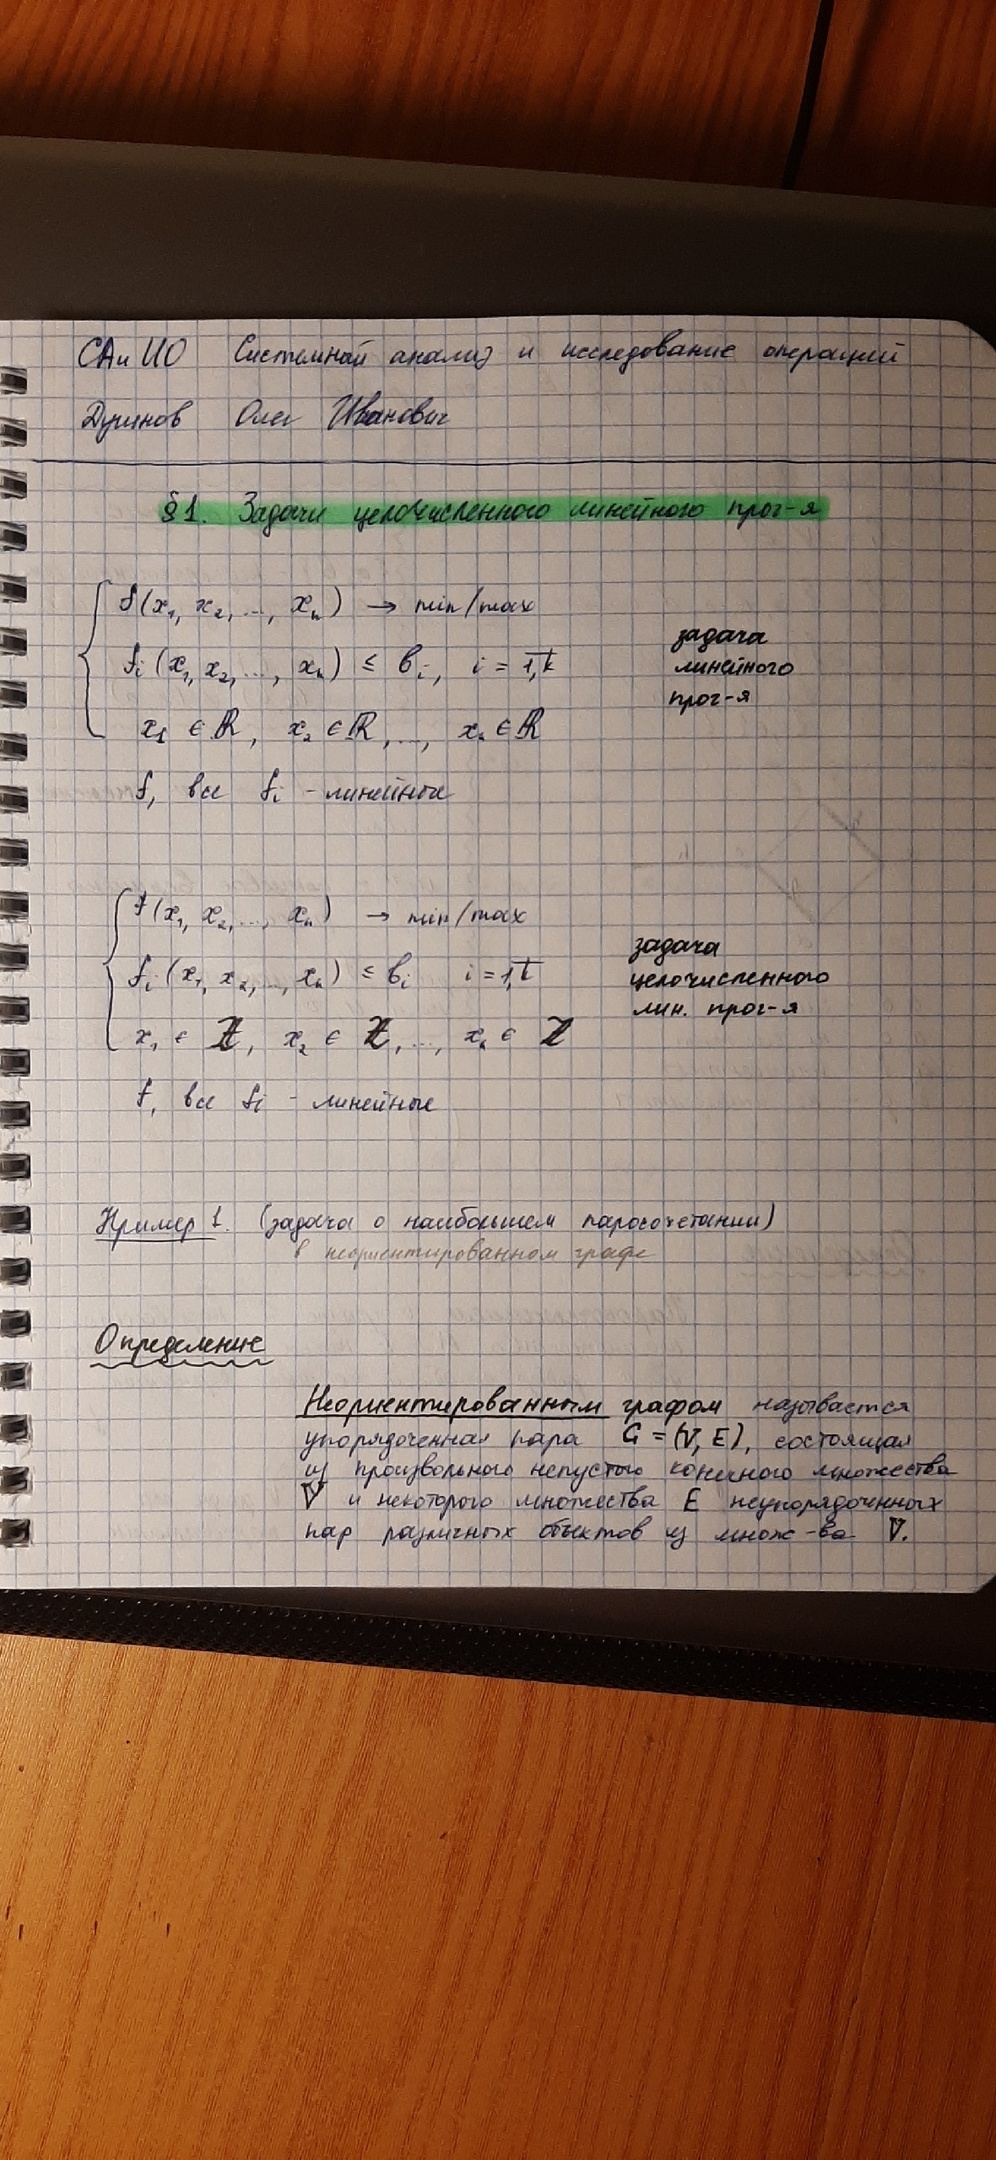 САиИО Системный анализ и исследование операций
Дугинов Олег Иванович
§1. Задачи целочисленного линейного прог-я
f(x₁, x₂, ..., xₙ) → min/max
fᵢ(x₁, x₂, ..., xₙ) ≤ bᵢ, i = 1,k
x₁ ∈ ℝ, x₂ ∈ ℝ, ..., xₙ ∈ ℝ
задача
линейного
прог-я
f, все fᵢ - линейные
f(x₁, x₂, ..., xₙ) → min/max
fᵢ(x₁, x₂, ..., xₙ) ≤ bᵢ i = 1,k
x₁ ∈ ℤ, x₂ ∈ ℤ, ..., xₙ ∈ ℤ
задача
целочисленного
лин. прог-я
f, все fᵢ - линейные
Пример 1. (задача о наибольшем паросочетании)
в неориентированном графе
Определение
Неориентированным графом называется
упорядоченная пара G = (V, E), состоящая
из произвольного непустого конечного множества
V и некоторого множества E неупорядоченных
пар различных объектов из множ-ва V.